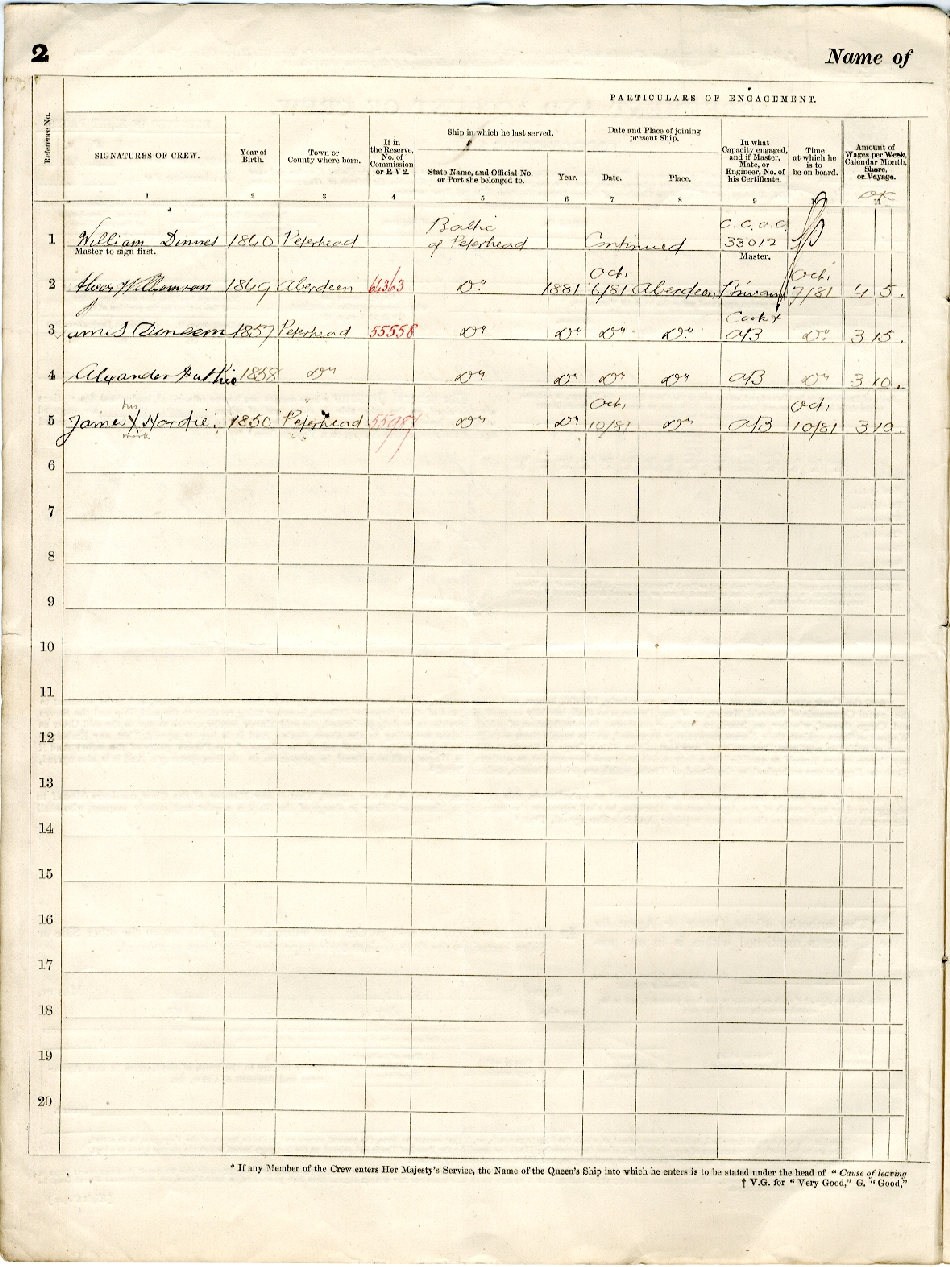 2
Name of
PARTICULARS OF ENGAGEMENT.
Reference No.
SIGNATURES OF CREW.
Year of Birth.
Town or County where born.
If in the Reserve, No. of Commission or R V 2.
Ship in which he last served.
State Name, and Official No. or Port she belonged to.
Year.
Date and Place of joining present Ship.
Date.
Place.
In what Capacity engaged, and if Master, Mate, or Engineer, No. of his Certificate.
Time at which he is to be on board.
Amount of Wages per Week, Calendar Month, Share, or Voyage.
1 2 3 4 5 6 7 8 9 10 11
1 William Dinnes 1860 Peterhead Baltic of Peterhead Continued C.C. 33012
Master to sign first.
Master.
2 1869 Aberdeen Do 1881 Oct. 6/81 Aberdeen Oct. 7/81 4 5 .
3 1857 Peterhead 55558 Do Do Do Do Cook & AB Do 3 15 .
4 Alexander 1858 Do Do Do Do Do AB Do 3 10 .
5 James X Hardie. 1850 Peterhead Do Do Oct. 10/81 Do AB Oct. 10/81 3 10 .
his
mark
6
7
8
9
10
11
12
13
14
15
16
17
18
19
20
* If any Member of the Crew enters Her Majesty's Service, the Name of the Queen's Ship into which he enters is to be stated under the head of " Cause of leaving
† V.G. for " Very Good," G. "Good,"